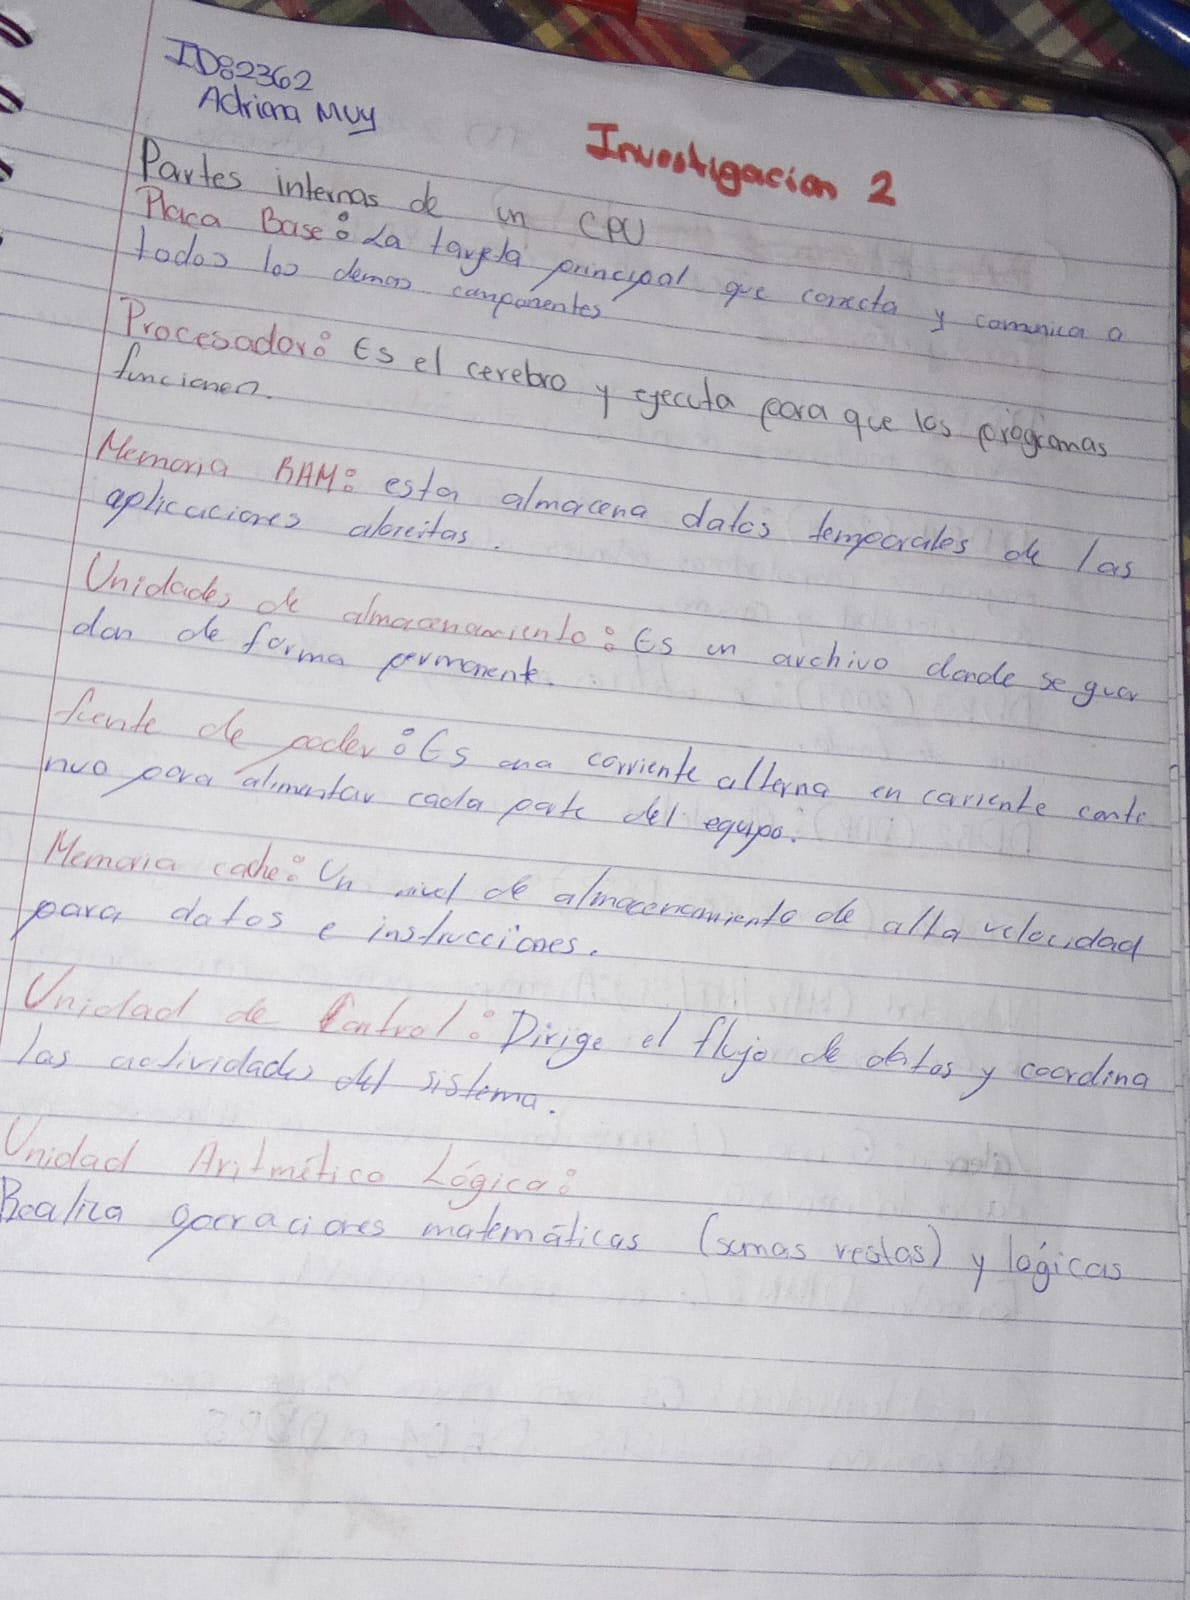 ID:82362
Adriana Muy
Investigacion 2
Partes internas de un CPU
Placa Base: La tarjeta principal que conecta y comunica a
todos los demas componentes
Procesador: Es el cerebro y ejecuta para que los programas
funcionen.
Memoria RAM: esta almacena datos temporales de las
aplicaciones abreitas.
Unidades de almacenamiento: Es un archivo donde se guar
dan de forma permanente.
fuente de poder: Es una corriente alterna en cariente conti
nuo para alimentar cada parte del equipo.
Memoria cache: Un nivel de almacenamiento de alta velocidad
para datos e instrucciones.
Unidad de Control: Dirige el flujo de datos y coordina
las actividades del sistema.
Unidad Aritmético Lógica:
Realiza operaciones matemáticas (sumas restas) y lógicas